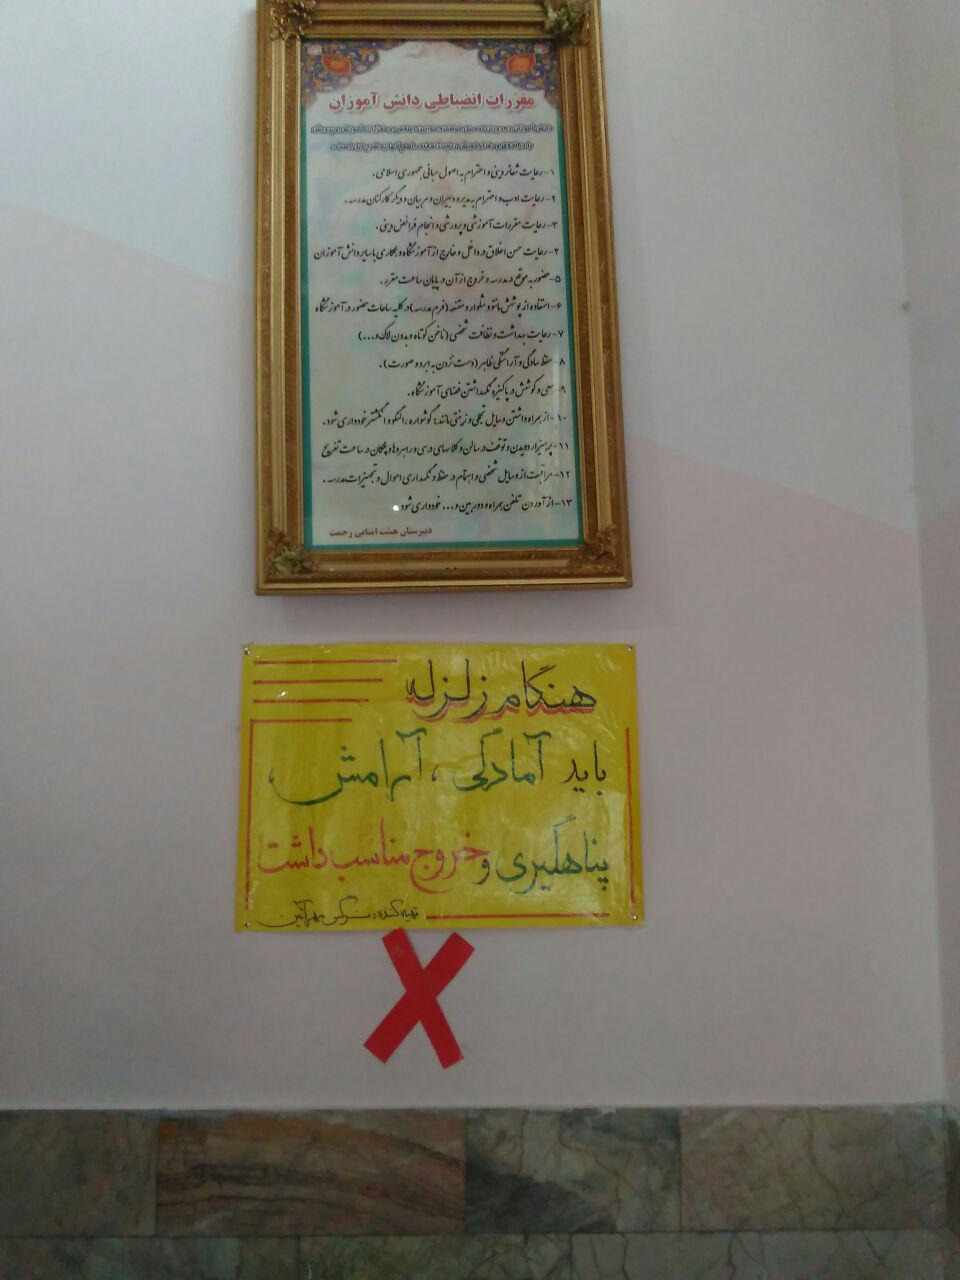 مقررات انضباطی دانش آموزان
۱- رعایت شعائر دینی و احترام به اصول مبانی جمهوری اسلامی.
۲- رعایت ادب و احترام به مدیر و دبیران و مربیان و دیگر کارکنان مدرسه.
۳- رعایت مقررات آموزشی و پرورشی و انجام فرائض دینی.
۴- رعایت حسن اخلاق در داخل و خارج از آموزشگاه و همکاری با سایر دانش آموزان
۵- حضور به موقع در مدرسه و خروج از آن در پایان ساعت مقرر.
۶- استفاده از پوشش مانتو و شلوار و مقنعه (فرم مدرسه) در کلیه ساعات حضور در آموزشگاه
۷- رعایت بهداشت و نظافت شخصی (ناخن کوتاه و بدون لاک و...)
۸- حفظ سادگی و آراستگی ظاهر (دست نزدن به ابرو و صورت).
۹- سعی و کوشش در پاکیزه نگهداشتن فضای آموزشگاه.
۱۰- از بهمراه داشتن وسایل تجملی و زینتی مانند: گوشواره، النگو و انگشتر خودداری شود.
۱۱- پرهیز از دویدن و توقف در سالن و کلاسهای درسی و راهروها و پلکان در ساعت تفریح
۱۲- مراقبت از وسایل شخصی و اهتمام در حفظ و نگهداری اموال و تجهیزات مدرسه.
۱۳- از آوردن تلفن همراه و دوربین و... خودداری شود.
دبیرستان هیئت امنایی رحمت
هنگام زلزله
باید آمادگی، آرامش،
پناهگیری و خروج مناسب داشت
تهیه کننده: نرگس مهرآئین